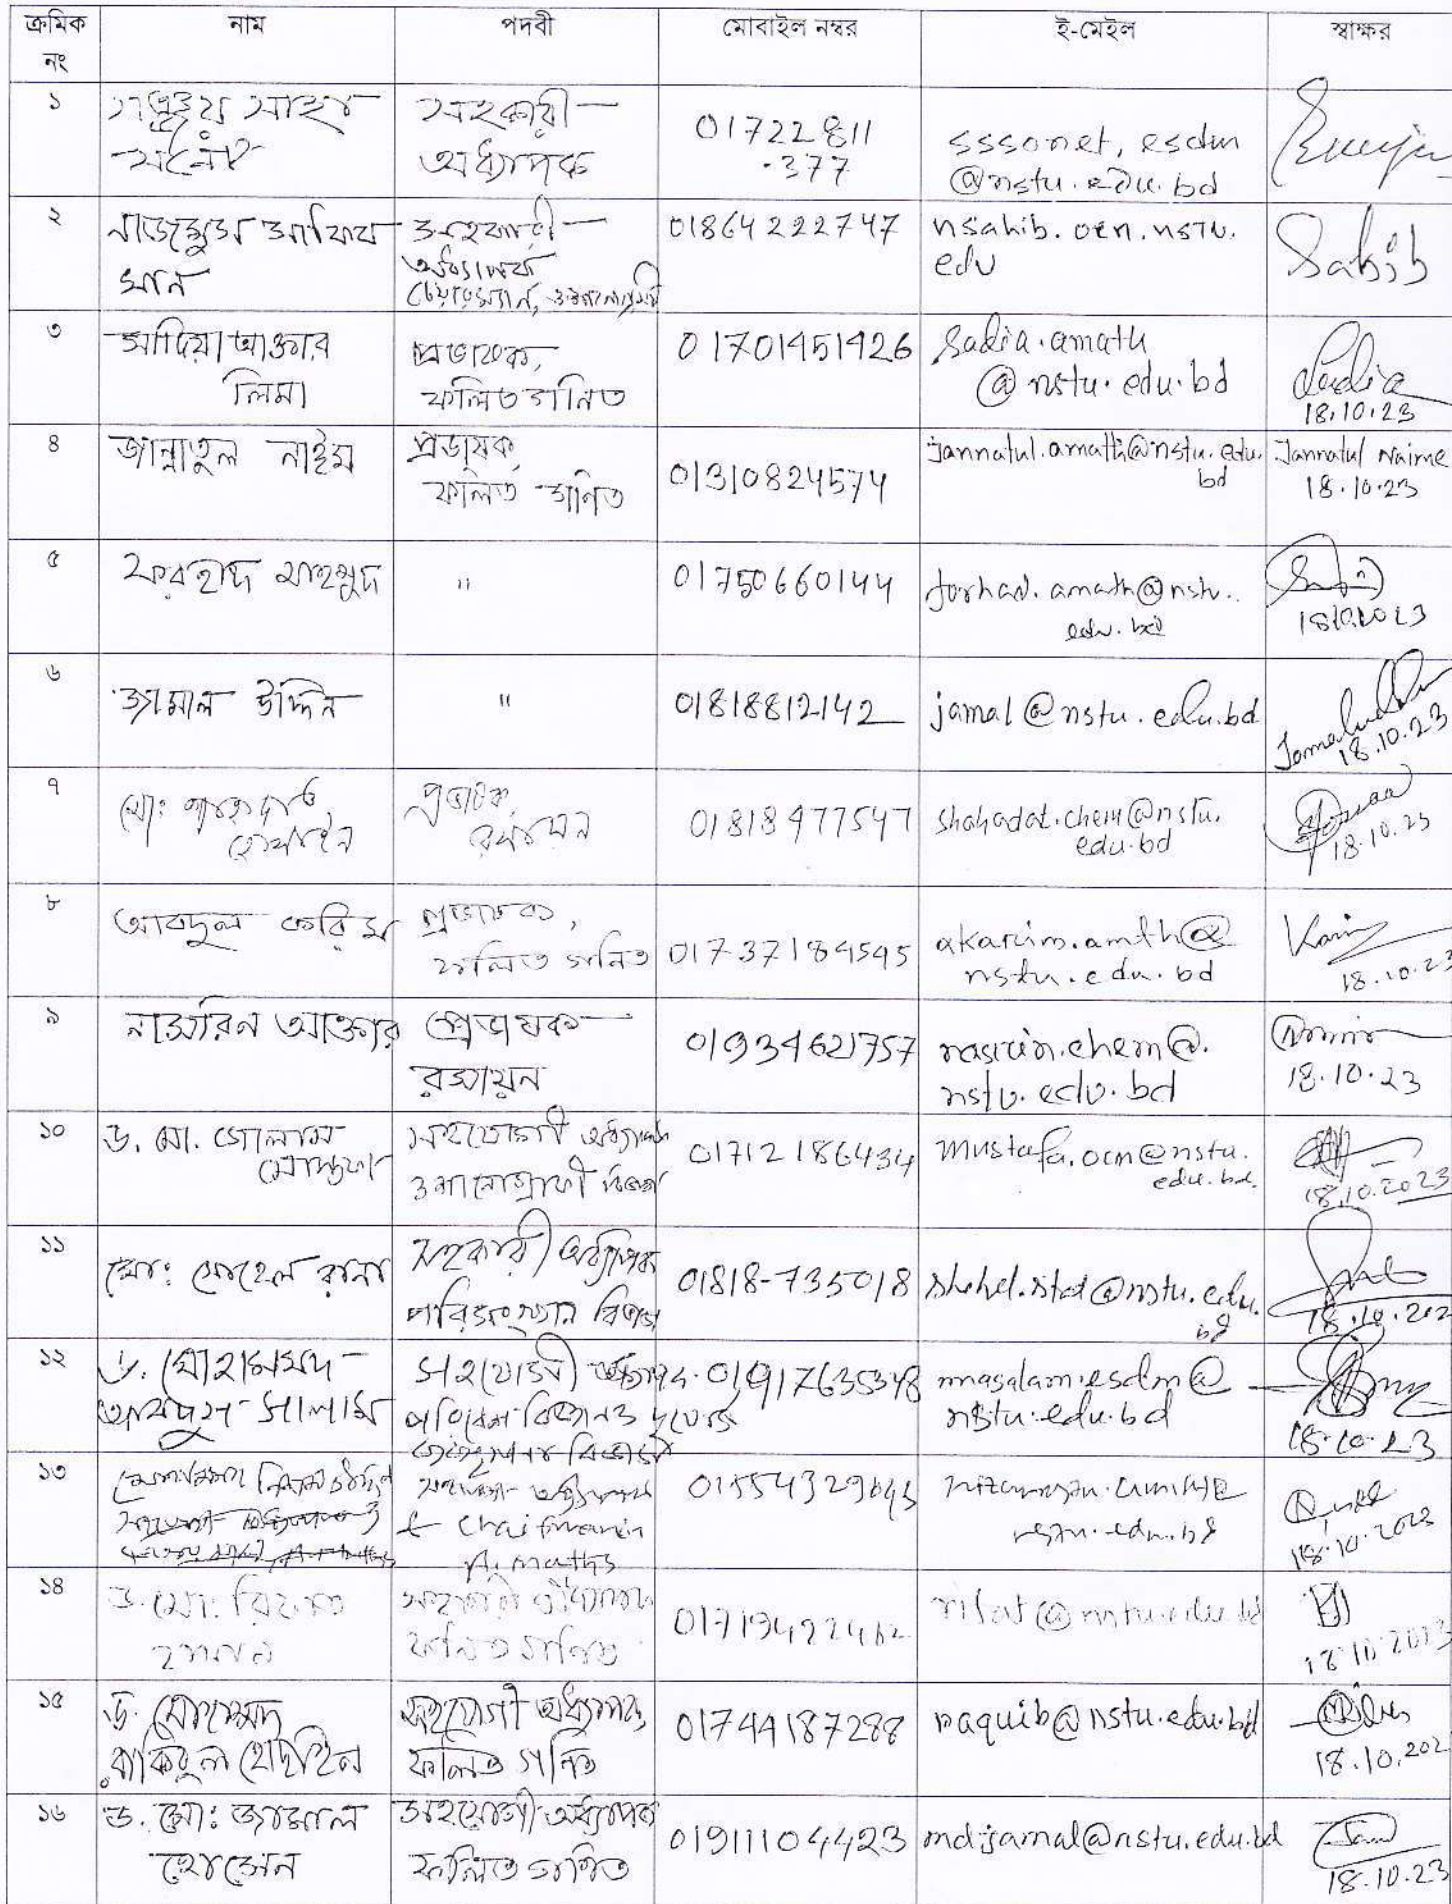 ক্রমিক নং নাম পদবী মোবাইল নম্বর ই-মেইল স্বাক্ষর
১ সঞ্জয় সাহা সনেট সহকারী অধ্যাপক 01722811377 sssonet, esdm @nstu.edu.bd
২ নাজমুস সাকিব খান সহকারী অধ্যাপক চেয়ারম্যান, 01864222747 nsahib.ocn.nstu.edu Sakib
৩ সাদিয়া আক্তার লিমা প্রভাষক, ফলিত গনিত 01701451426 sadia.amath @nstu.edu.bd Sadia 18.10.23
৪ জান্নাতুল নাইম প্রভাষক, ফলিত গনিত 01310824574 jannatul.amath@nstu.edu.bd Jannatul Naime 18.10.23
৫ ফরহাদ মাহমুদ " 01750660144 forhad.amath@nstu.edu.bd
৬ জামাল উদ্দিন " 01818812142 jamal@nstu.edu.bd 18.10.23
৭ মো: শাহাদাত হোসাইন প্রভাষক, রসায়ন 01818477547 shahadat.chem@nstu.edu.bd 18.10.23
৮ আবদুল করিম প্রভাষক, ফলিত গনিত 01737184545 akarim.amth@nstu.edu.bd Karim 18.10.23
৯ নাসরিন আক্তার প্রভাষক রসায়ন 01934621757 nasrin.chem@nstu.edu.bd 18.10.23
১০ ড. মো. গোলাম মোস্তফা সহযোগী অধ্যাপক ওশানোগ্রাফী বিভাগ 01712186434 mustafa.ocn@nstu.edu.bd. 18.10.2023
১১ মো: সোহেল রানা সহকারী অধ্যাপক পরিসংখ্যান বিভাগ 01818-735018 shohel.stat@nstu.edu.bd 18.10.202
১২ ড. মোহাম্মদ আবদুস সালাম সহযোগী অধ্যাপক 01917635348 masalam.esdm@nstu.edu.bd 18.10.23
১৩ & Chairman A. maths 18.10.2023
১৪ ড. মো: রিফাত হাসান সহকারী অধ্যাপক ফলিত গনিত 01719422462 rifat@nstu.edu.bd 18.10.2023
১৫ ড. মোহাম্মদ রাকিবুল হোছাইন সহযোগী অধ্যাপক, ফলিত গনিত 01744187288 raquib@nstu.edu.bd 18.10.202
১৬ ড. মো: জামাল হোসেন সহযোগী অধ্যাপক ফলিত গণিত 01911104423 mdjamal@nstu.edu.bd 18.10.23